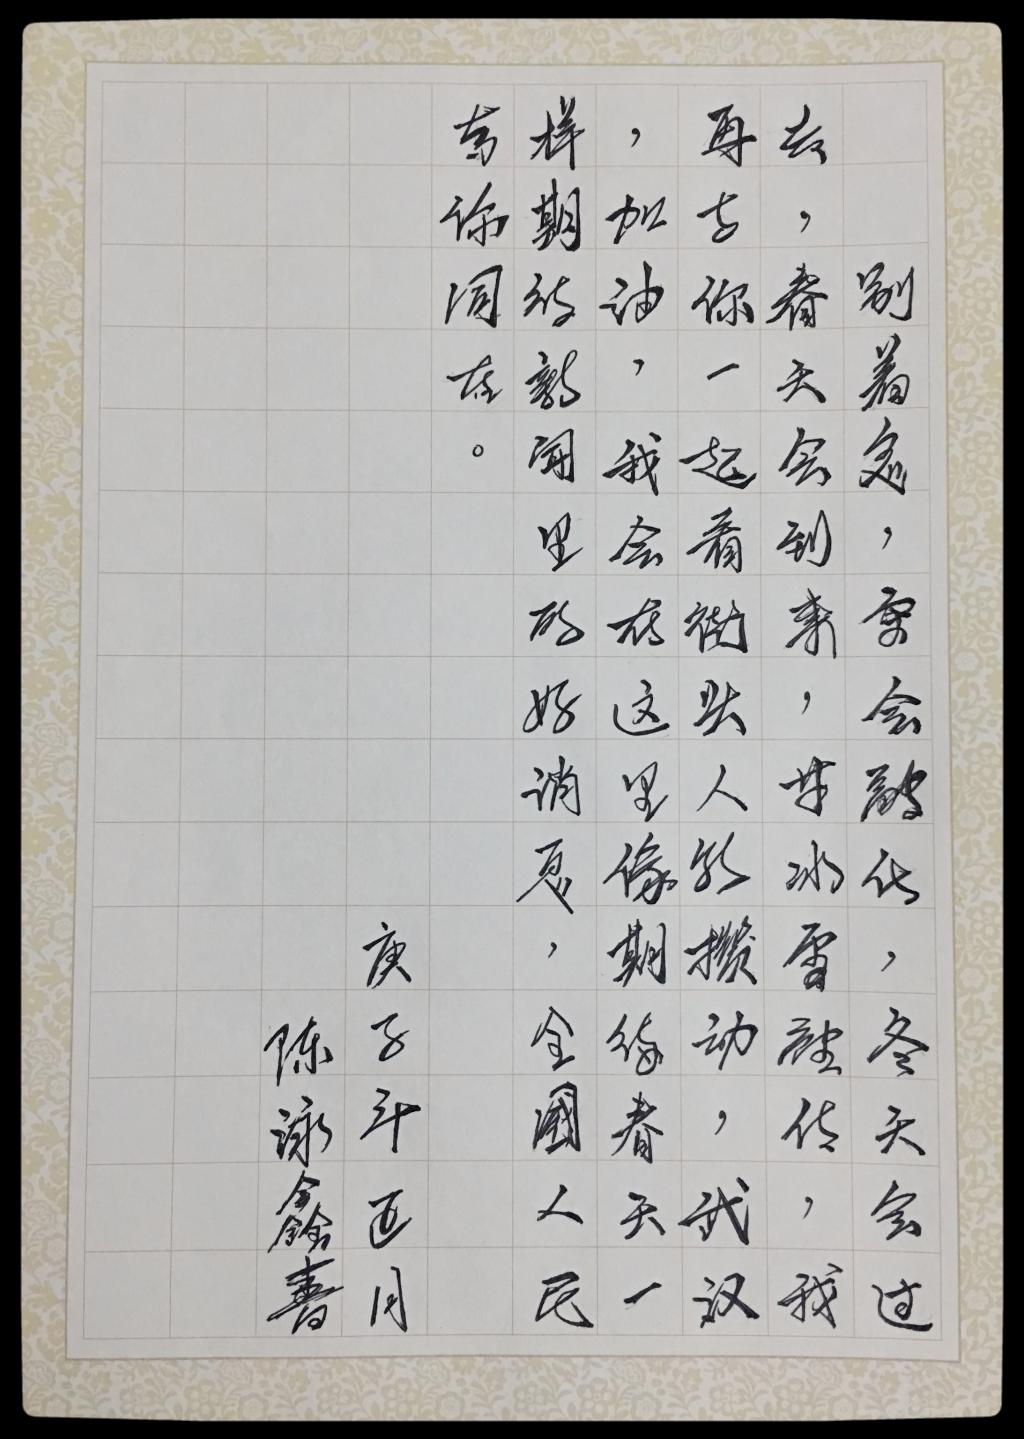 别着急，雪会融化，冬天会过
去，春天会到来，等冰雪融化，我
再与你一起看街头人影攒动，武汉
，加油，我会在这里像期待春天一
样期待新闻里的好消息，全國人民
与你同在。
庚子年正月
陈詠鑫書